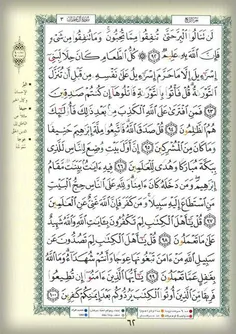 لَن تَنَالُوا۟ ٱلْبِرَّ حَتَّىٰ تُنفِقُوا۟ مِمَّا تُحِبُّونَ وَمَا تُنفِقُوا۟ مِن شَىْءٍ
فَإِنَّ ٱللَّهَ بِهِۦ عَلِيمٌ ٩٢ كُلُّ ٱلطَّعَامِ كَانَ حِلًّا لِّبَنِىٓ
إِسْرَٰٓءِيلَ إِلَّا مَا حَرَّمَ إِسْرَٰٓءِيلُ عَلَىٰ نَفْسِهِۦ مِن قَبْلِ أَن تُنَزَّلَ
ٱلتَّوْرَىٰةُ قُلْ فَأْتُوا۟ بِٱلتَّوْرَىٰةِ فَٱتْلُوهَآ إِن كُنتُمْ صَٰدِقِينَ ٩٣
فَمَنِ ٱفْتَرَىٰ عَلَى ٱللَّهِ ٱلْكَذِبَ مِنۢ بَعْدِ ذَٰلِكَ فَأُو۟لَٰٓئِكَ
هُمُ ٱلظَّٰلِمُونَ ٩٤ قُلْ صَدَقَ ٱللَّهُ فَٱتَّبِعُوا۟ مِلَّةَ إِبْرَٰهِيمَ حَنِيفًا
وَمَا كَانَ مِنَ ٱلْمُشْرِكِينَ ٩٥ إِنَّ أَوَّلَ بَيْتٍ وُضِعَ لِلنَّاسِ لَلَّذِى
بِبَكَّةَ مُبَارَكًا وَهُدًى لِّلْعَٰلَمِينَ ٩٦ فِيهِ ءَايَٰتٌۢ بَيِّنَٰتٌ مَّقَامُ
إِبْرَٰهِيمَ وَمَن دَخَلَهُۥ كَانَ ءَامِنًا وَلِلَّهِ عَلَى ٱلنَّاسِ حِجُّ ٱلْبَيْتِ
مَنِ ٱسْتَطَاعَ إِلَيْهِ سَبِيلًا وَمَن كَفَرَ فَإِنَّ ٱللَّهَ غَنِىٌّ عَنِ ٱلْعَٰلَمِينَ
٩٧ قُلْ يَٰٓأَهْلَ ٱلْكِتَٰبِ لِمَ تَكْفُرُونَ بِـَٔايَٰتِ ٱللَّهِ وَٱللَّهُ شَهِيدٌ
عَلَىٰ مَا تَعْمَلُونَ ٩٨ قُلْ يَٰٓأَهْلَ ٱلْكِتَٰبِ لِمَ تَصُدُّونَ عَن
سَبِيلِ ٱللَّهِ مَنْ ءَامَنَ تَبْغُونَهَا عِوَجًا وَأَنتُمْ شُهَدَآءُ وَمَا ٱللَّهُ
بِغَٰفِلٍ عَمَّا تَعْمَلُونَ ٩٩ يَٰٓأَيُّهَا ٱلَّذِينَ ءَامَنُوٓا۟ إِن تُطِيعُوا۟
فَرِيقًا مِّنَ ٱلَّذِينَ أُوتُوا۟ ٱلْكِتَٰبَ يَرُدُّوكُم بَعْدَ إِيمَٰنِكُمْ كَٰفِرِينَ ١٠٠
٦٢